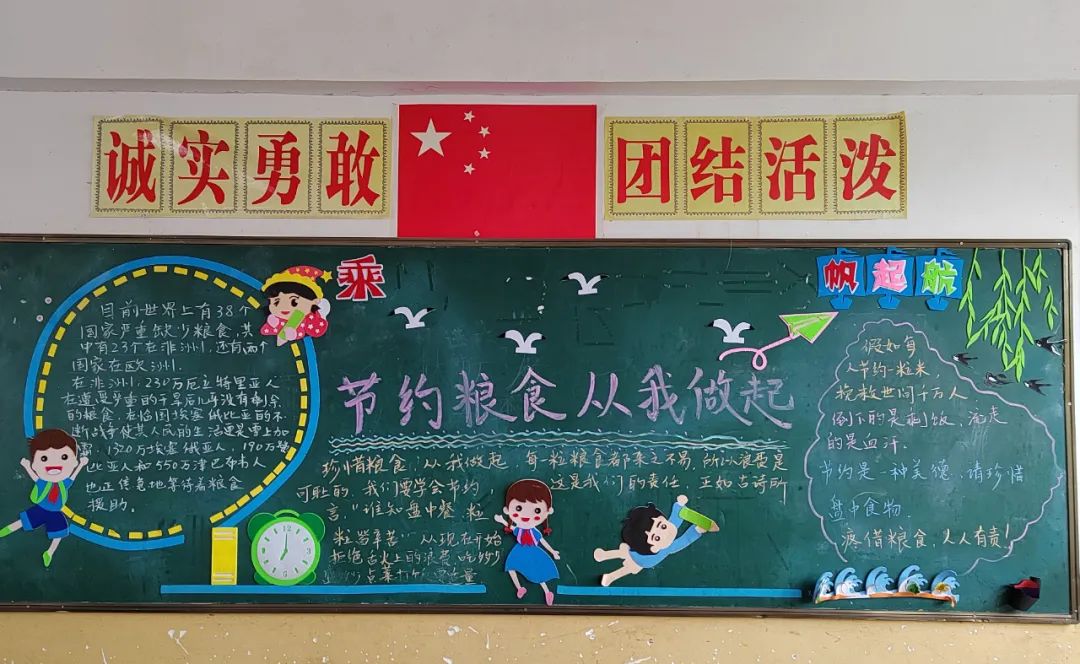 诚实勇敢
团结活泼
乘
帆起航
目前世界上有38个
国家严重缺少粮食,其
中有23个在非洲,还有两个
国家在欧洲.
在非洲,230万厄立特里亚人
在遭受严重的干旱后几乎没有剩余
的粮食,在临国埃塞俄比亚的不
断战争使其人民的生活更是雪上加
霜.1320万埃塞俄亚人,190万赞
比亚人和550万津巴布韦人
也正焦急地等待着粮食
援助。
节约粮食从我做起
珍惜粮食,从我做起,每一粒粮食都来之不易,所以浪费是
可耻的,我们要学会节约 这是我们的责任,正如古诗所
言,"谁知盘中餐,粒
粒皆辛苦"从现在开始
拒绝舌尖上的浪费 吃多少
点菜
假如每
人节约一粒米
挽救世间千万人
倒下的是剩饭,流走
的是血汗.
节约是一种美德,请珍惜
盘中食物.
疼惜粮食,人人有责!